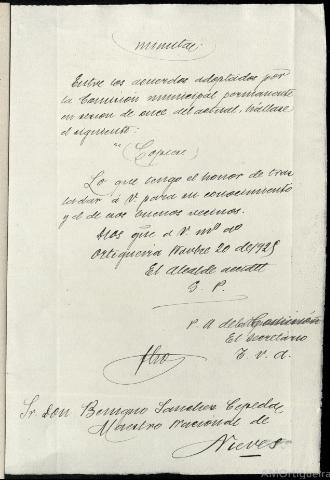 minuta:
Entre los acuerdos adoptados por
la Comisión municipal permanente
en sesion de once del actual, hállase
el siguiente:
"(Copiese)
Lo que tengo el honor de tras
ladar á V. para su conocimiento
y el de sus buenos vecinos.
Dios gue á V. ms. as.
Ortigueira Novbre 20 de 1925
El Alcalde accdtl
J. P.
P. A. de la Comisión
El Secretario
T. V. d.
Sr. Don Benigno Sanchez Cepeda,
Maestro Nacional de
Nieves
AMOrtigueira